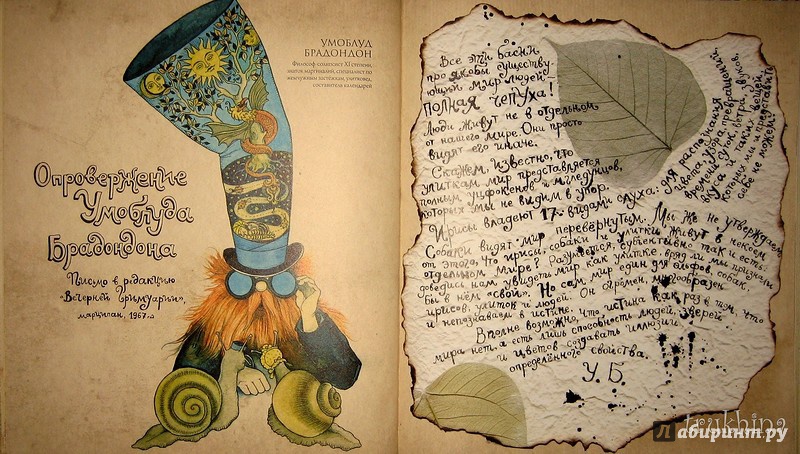 УМОБЛУД
БРАДОНДОН
Философ-солипсист XI степени,
знаток мартингалий, специалист по
жемчужным застёжкам, улитковед,
составитель календарей
Опровержение
Умоблуда
Брадондона
Письмо в редакцию
«Вечерней Гримуарии»,
марципан, 1967.
Все эти басни
про якобы существу-
ющий мир людей -
ПОЛНАЯ ЧЕПУХА!
Люди живут не в отдельном
от нашего мире. Они просто
видят его иначе.
Скажем, известно, что
улиткам мир представляется
полным уцфокенов и мгледунцов,
которых мы не видим в упор.
Ирисы владеют 17 видами слуха: для распознания
цвета, узора, превращений,
времени суток, ветра, звуков,
вкуса и таких вещей,
которых мы и представить
себе не можем!
Собаки видят мир перевёрнутым. Мы же не утверждаем
от этого, что ирисы, собаки и улитки живут в некоем
отдельном мире? Разумеется, субъективно так и есть:
доведись нам увидеть мир как улитке, вряд ли мы признали
бы в нём «свой». Но сам мир один для эльфов, собак,
ирисов, улиток и людей. Он огромен, многообразен
и непознаваем в истине.
Вполне возможно, что истина как раз в том, что
мира нет, а есть лишь способность людей, зверей
и цветов создавать иллюзии
определённого свойства.
У. Б.
trukhina
Лабиринт.ру